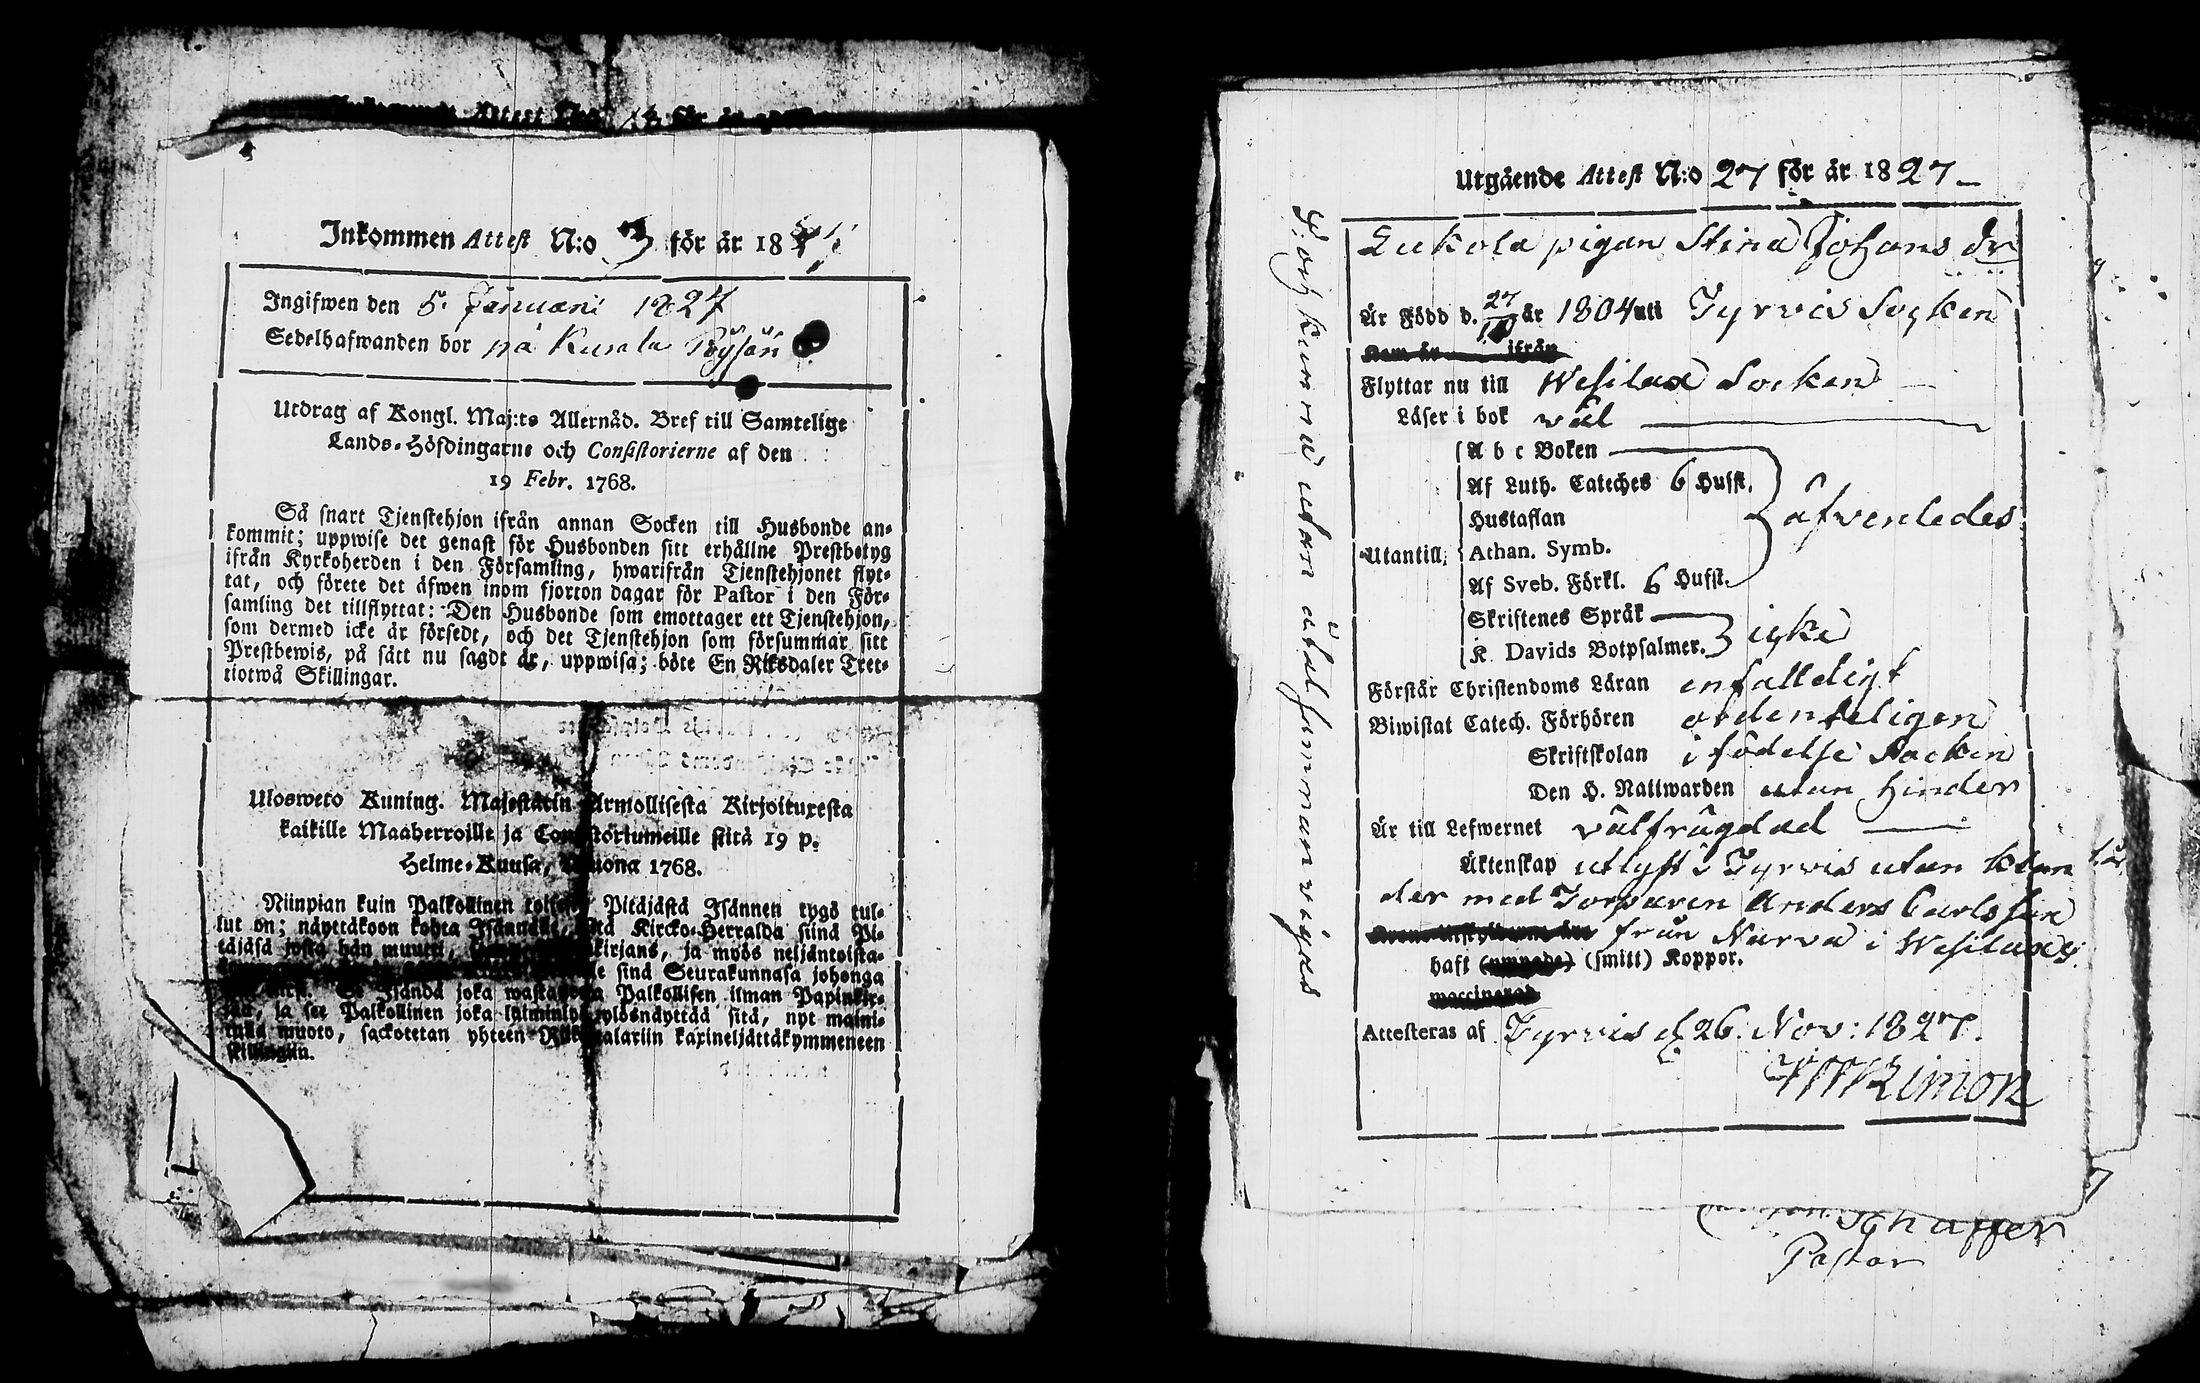 Attest
Inkommen Attest N:o 3 för år 18
Ingifwen den 5. Januari 1827
Sedelhafwanden bor på Kurala
Utdrag af Kongl. Maj:ts Allernåd. Bref till Samtelige
Lands-Höfdingarne och Consistorierne af den
19 Febr. 1768.
Så snart Tjenstehjon ifrån annan Socken till Husbonde an-
kommit; uppwise det genast för Husbonden sitt erhållne Prestbetyg
ifrån Kyrkoherden i den Församling, hwarifrån Tjenstehjonet flyt-
tat, och förete det äfwen inom fjorton dagar för Pastor i den För-
samling det tillflyttat: Den Husbonde som emottager ett Tjenstehjon,
som dermed icke är försedt, och det Tjenstehjon som försummar sitt
Prestbewis, på sätt nu sagdt är, uppwisa; böte En Riksdaler Tret-
tiotwå Skillingar.
Ulosweto Kuning. Majestätin Armollisesta Kirjoituxesta
kaikille Maaherroille ja Consistöriumeille siitä 19 p.
Helme-Kuusa, Wuona 1768.
Niinpian kuin Palkollinen toisesta Pitäjästä Isännen tygö tul-
lut on; näyttäköön kohta Isännelle, että Kircko-Herralda siinä Pi-
täjäsä josta hän muutti, kirjans, ja myös neljäntoista-
sinä Seurakunnasa johonga
Isändä joka wastaanotta Palkollisen ilman Papinkir-
ja see Palkollinen joka ylösnäyttää sitä, nyt maini-
muoto, sackotetan yhteen Riikintalariin kaxineljättäkymmeneen
skillingiin.
Utgående Attest N:o 27 för år 1827
pigan Stina Johans dr
Är Född d. 27/10 år 1804 uti Tyrvis Socken
Kom år ifrån
Flyttar nu till Wesilax Socken
Läser i bok väl
A b c Boken
Af Luth. Cateches 6 Hufst.
Hustaflan äfvenledes
Utantill, Athan. Symb.
Af Sveb. Förkl. 6 Hufst.
Skriftenes Språk
K. Davids Botpsalmer. icke
Förstår Christendoms Läran enfalldigt
Biwistat Catech. Förhören ordenteligen
Skriftskolan i födelse Socken
Den H. Nattwarden utan hinder
Är till Lefwernet välfrägdad
Äktenskap utlyst i Tyrvis utan klan
der med Torparen Anders Carlsson
från Narva i Wesilax
haft (smitt) Koppor.
Attesteras af Tyrvis d. 26. Nov: 1827.
och kunna utan åtal sammanvigas
Pastor